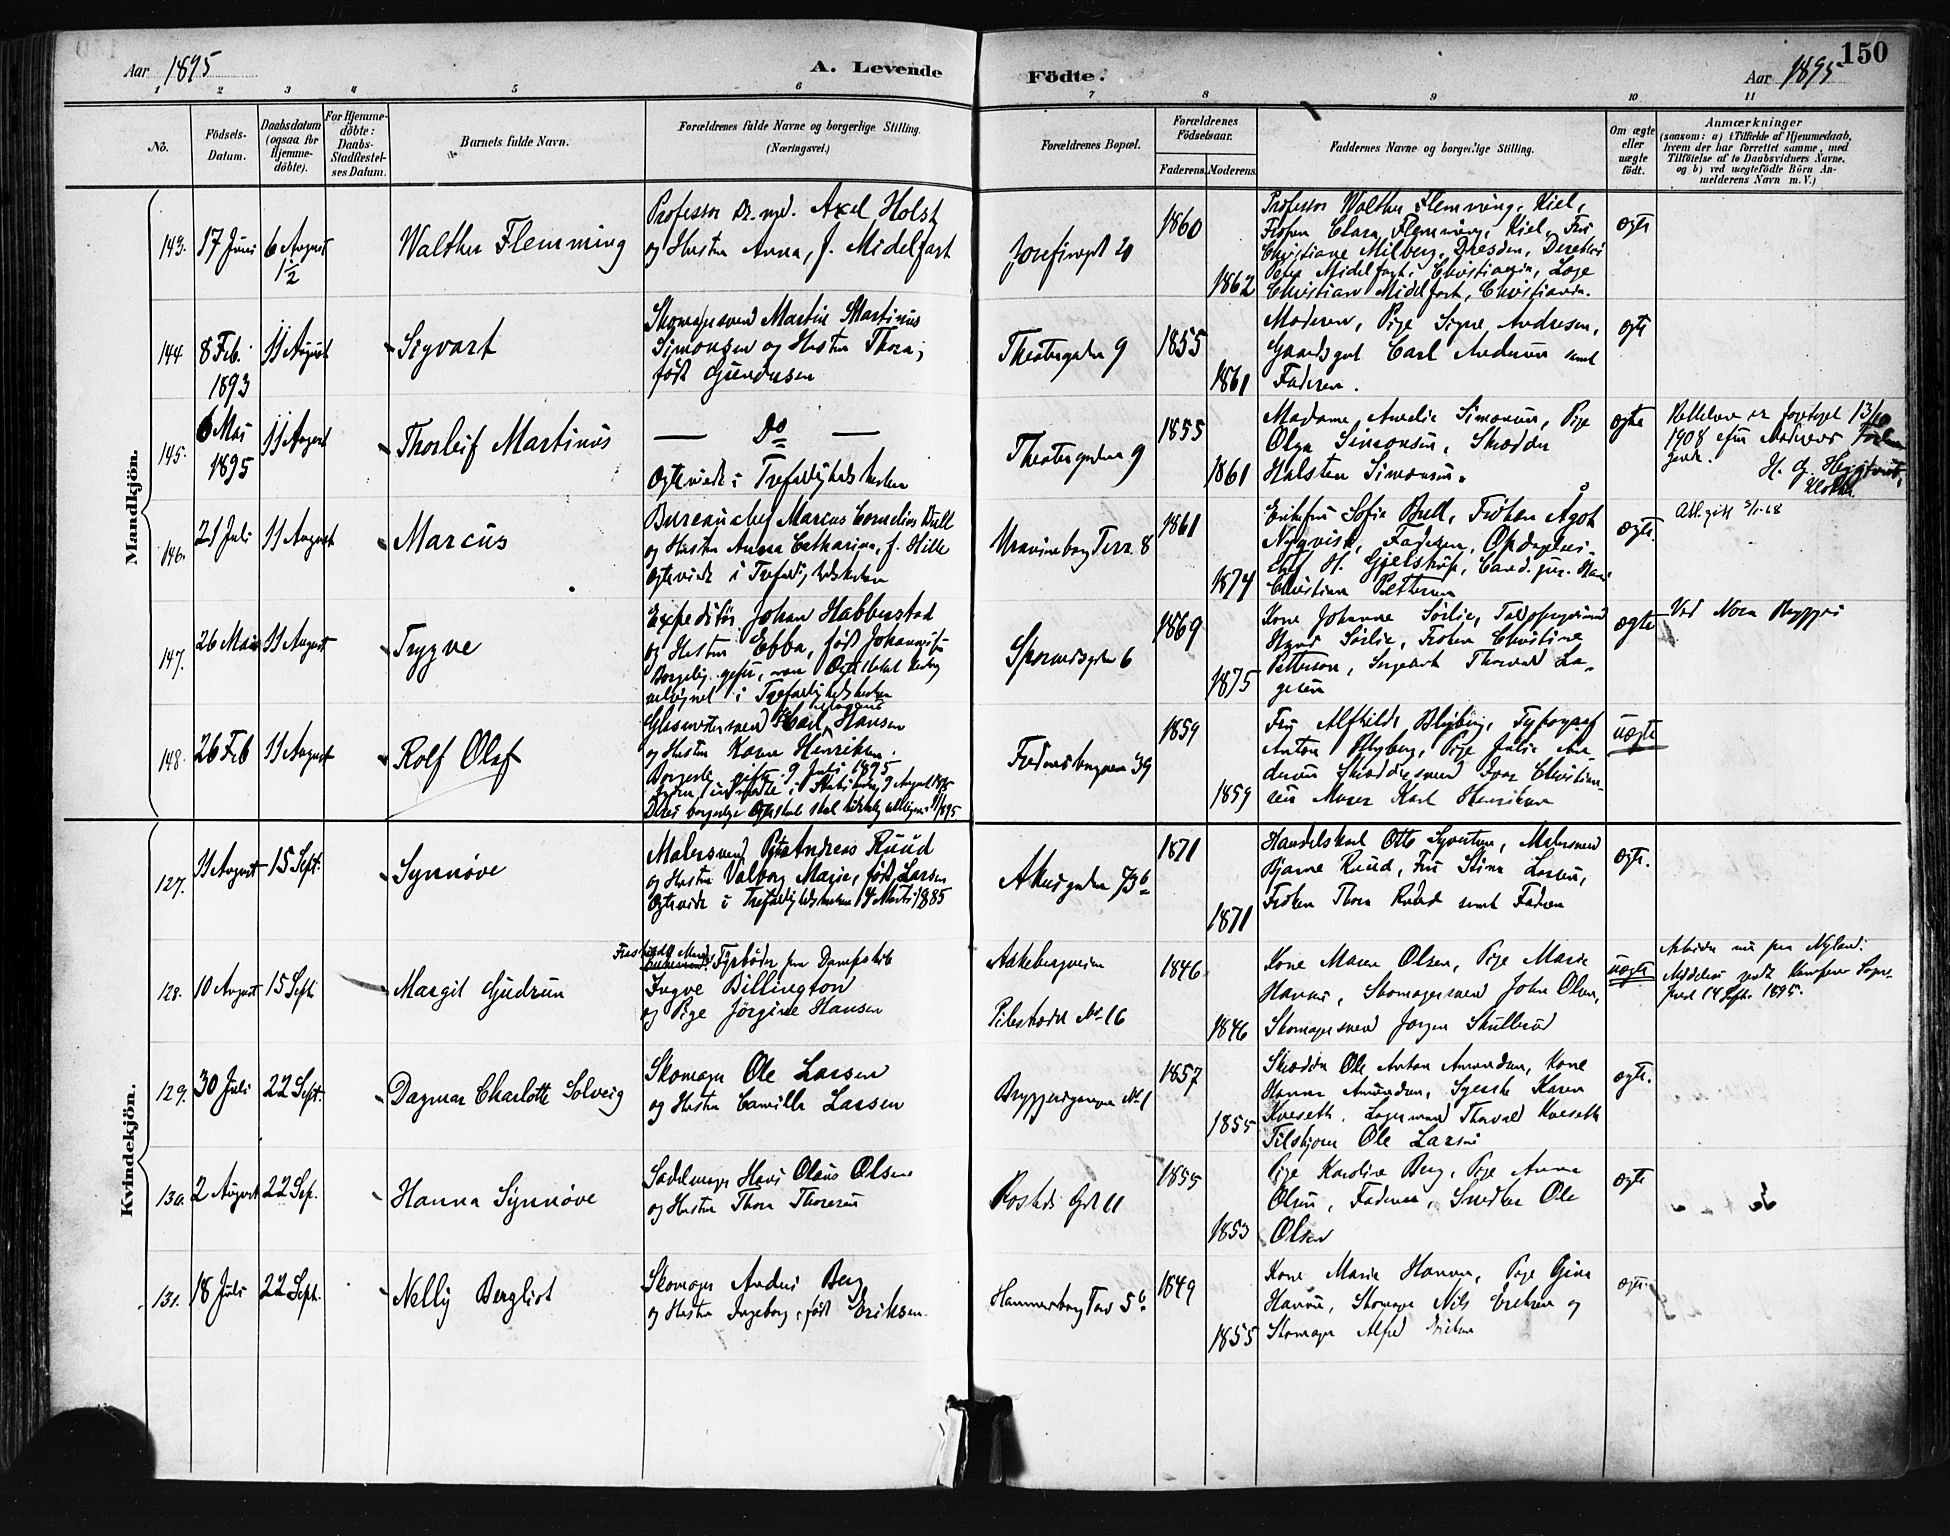 150
Aar 1895
A. Levende
Födte.
Aar 1895
1 2 3 4 5 6 7 8 9 10 11
No.
Födsels-
Datum.
Daabsdatum
(ogsaa for
Hjemme-
döbte).
For Hjemme-
döbte:
Daabs-
Stadfæstel-
ses Datum.
Barnets fulde Navn.
Forældrenes fulde Navne og borgerlige Stilling.
(Næringsvei.)
Forældrenes Bopæl.
Forældrenes
Födselsaar.
Faderens.
Moderens.
Faddernes Navne og borgerlige Stilling.
Om ægte
eller
uægte
födt.
Anmærkninger
(saasom: a) i Tilfælde af Hjemmedaab,
hvem der har forrettet samme, med
Tilföielse af to Daabsvidners Navne,
og b) ved uægtefödte Börn An-
melderens Navn m. V.)
Mandkjön.
143. 17 Juni 6 August
1/2
Walther Flemming
Professor Dr. med. Axel Holst
og Hustru Anna, f. Midelfart
Josefinegt 20
1860
1862
Professor Walther Flemming, Kiel,
Frøken Clara Flemming, Kiel, Fru
Christiane Milberg, Dresden, Direktør
Peter Midelfart, Christiania, Læge
Christian Midelfart, Christiania.
ægte
144 8 Feb.
1893
11 August
Sigvart
Skomagersvend Martin Martinus
Simonsen og Hustru Thora,
født Gundersen
Theatergaden 9
1855
1861
Moderen, Pige Signe Andresen,
Gaardsgut Carl Andersen samt
Faderen.
ægte
145. 6 Mai
1895
11 August
Thorleif Martinus
Do
Ægteviede i Trefoldighedskirken
Theatergaden 9
1855
1861
Madame Amelie Simonsen, Pige
Olga Simonsen, Skrædder
Halsten Simonsen.
ægte
Rettelsen er foretaget 13/10
1908 efter Moderens
146. 21 Juli 11 August
Marcus
Bureauchef Marcus Cornelius Bull
og Hustru Anna Catharina, f. Hille
Ægteviede i Trefoldighedskirken
Uranienborg Terr. 8
1861
1874
Enkefru Sofie Bull, Frøken Ågot
Nyqvist, Faderen, Opdagelses-
chef H. Gjelstrup, Cand. jur. Hans
Christian Petersen
ægte.
Att. gitt
147. 26 Mai 11 August
Trygve
Expeditör Johan Habberstad
og Hustru Ebba, født Johannesen
Borgerlig gifte, men Ægteskabet kirkelig
velsignet i Trefoldighedskirken
1869
1875
Kone Johanne Sørlie,
Sørlie, Frøken Christine
Petterson, Thorvald La-
gesen
ægte
Ved Nora Bryggeri
148. 26 Feb 11 August
Rolf Olaf
Glasmestersvend Carl Hansen
og Hustru Karen Henriksen.
Borgerlig gifte 9 Juli 1895
1859
1859
Fru Alfhilde Blyberg, Typograf
Anton Blyberg, Pige Julie An-
dersen Skræddersvend Ivar Christian-
sen Murer Karl Henriksen
uægte
Kvindekjön.
127. 11 August 15 Sept.
Synnöve
Malersvend Andreas Ruud
og Hustru Valborg Marie, født Larsen
Ægteviede i Trefoldighedskirken 14 Marts 1885
Akersgaden 73 b
1871
1871
Handelskarl Otto Syvertsen, Malersvend
Bjarne Ruud, Fru Stina Larsen,
Frøken Thora Ruud samt Faderen
ægte.
128. 10 August 15 Sept
Margit Gudrun
Fyrbøder paa Dampskib
Ingve Billington
og Pige Jörgine Hansen
Akkebergveien
Pilestrædet No 16
1846
1846
Kone Maren Olsen, Pige Marie
Hansen, Skomagersvend John Olsen,
Skomagersvend Jörgen Skullerud
uægte
Arbeider nu paa Nyland.
14 Septr. 1895.
129. 30 Juli 22 Sept.
Dagmar Charlotte Solveig
Skomager Ole Larsen
og Hustru Camilla Larsen
Bryggergangen No 1
1857
1855
Skrædder Ole Anton Amundsen, Kone
Hanna Amundsen, Syerske Karen
Kveseth, Lagermand Thorvald Kveseth
Ole Larsen
ægte.
130. 2 August 22 Sep.
Hanna Synnöve
Sadelmager Hans Olaus Olsen
og Hustru Thora Thoresen
Rosteds Gd. 11
1855
1853
Pige Karoline Berg, Pige Anna
Olsen, Faderen, Snedker Ole
Olsen
ægte
131. 18 Juli 22 Sept.
Nelly Bergliot
Skomager Anders Berg
og Hustru Ingeborg, født Eriksen
Hammersborg Torv 5 b
1849
1855
Kone Marie Hansen, Pige Gina
Hansen, Skomager Nils Eriksen og
Skomager Alfred
ægte